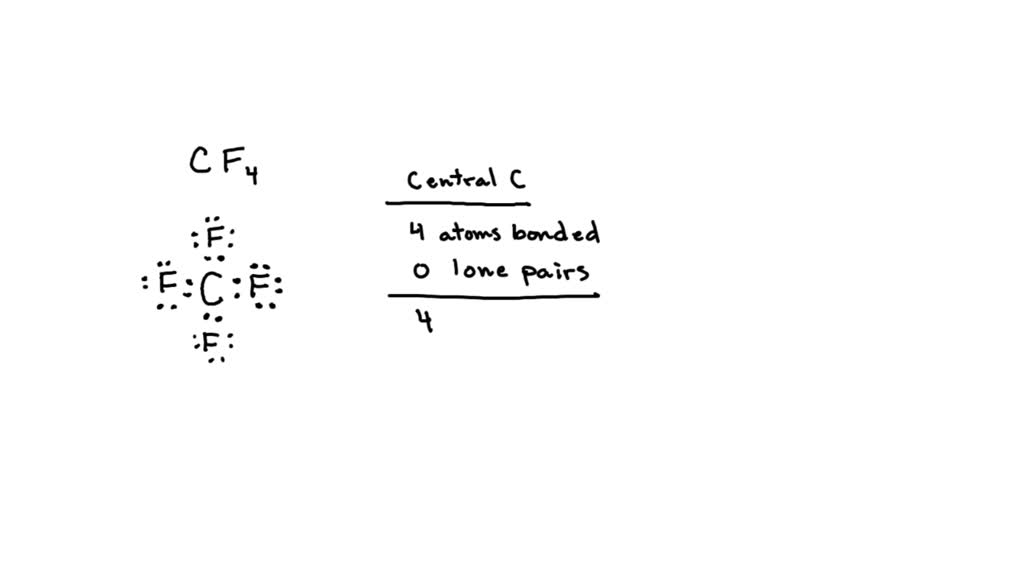 CF₄
Central C
4 atoms bonded
0 lone pairs
4
:F:
:F:C:F:
:F: